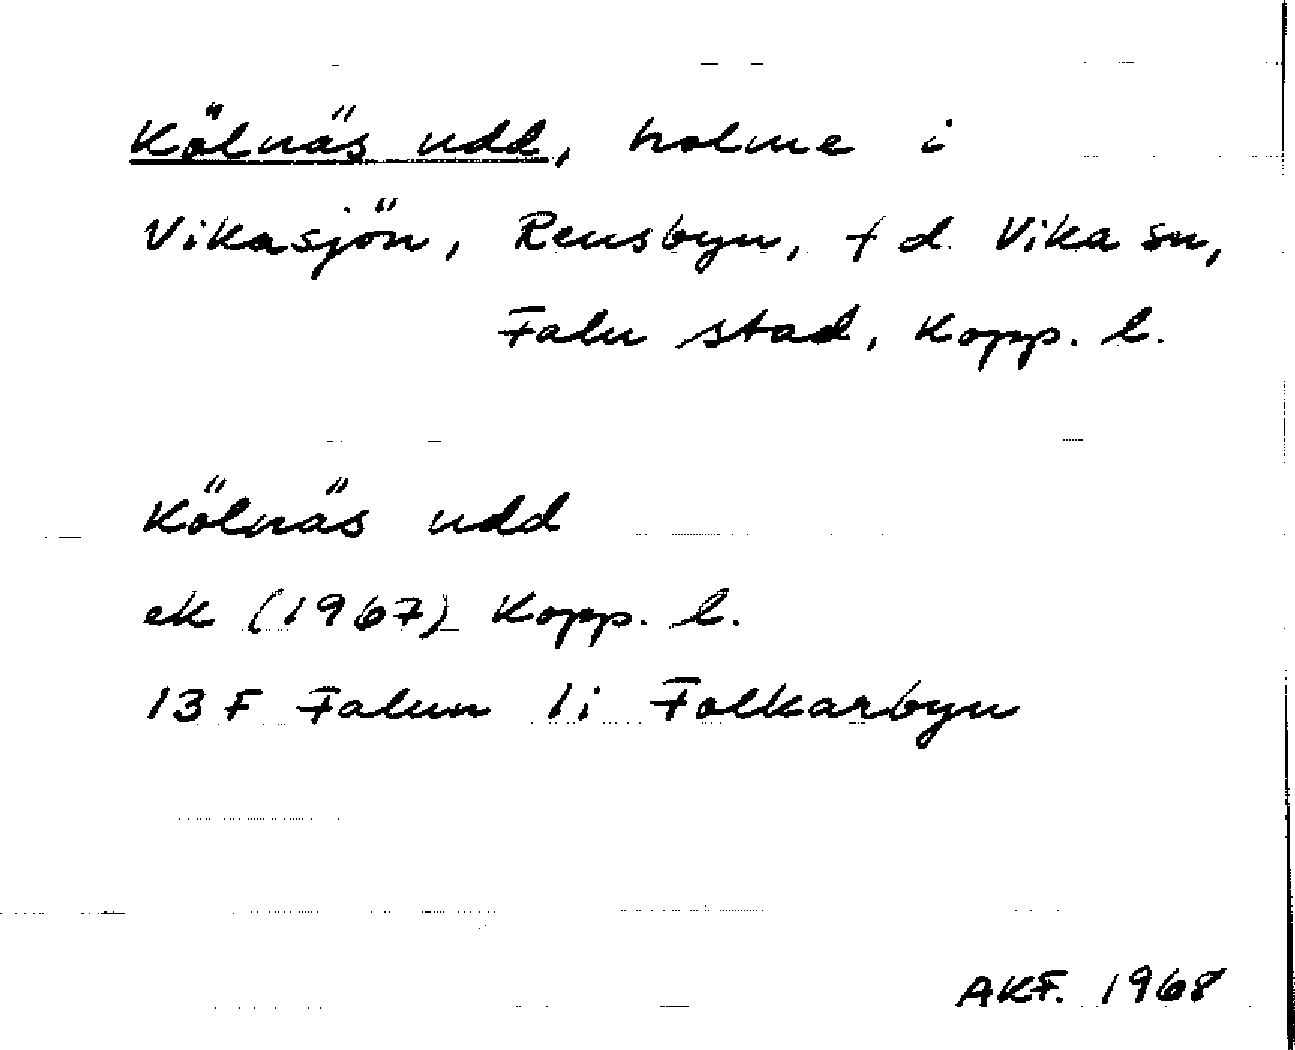 Kölnäs udd, holme i
Vikasjön, Rensbyn, f d. Vika sn,
Falu stad, Kopp. l.
Kölnäs udd
ek (1967) Kopp. l.
13 F Falun 1i Folkarbyn
AKF. 1968